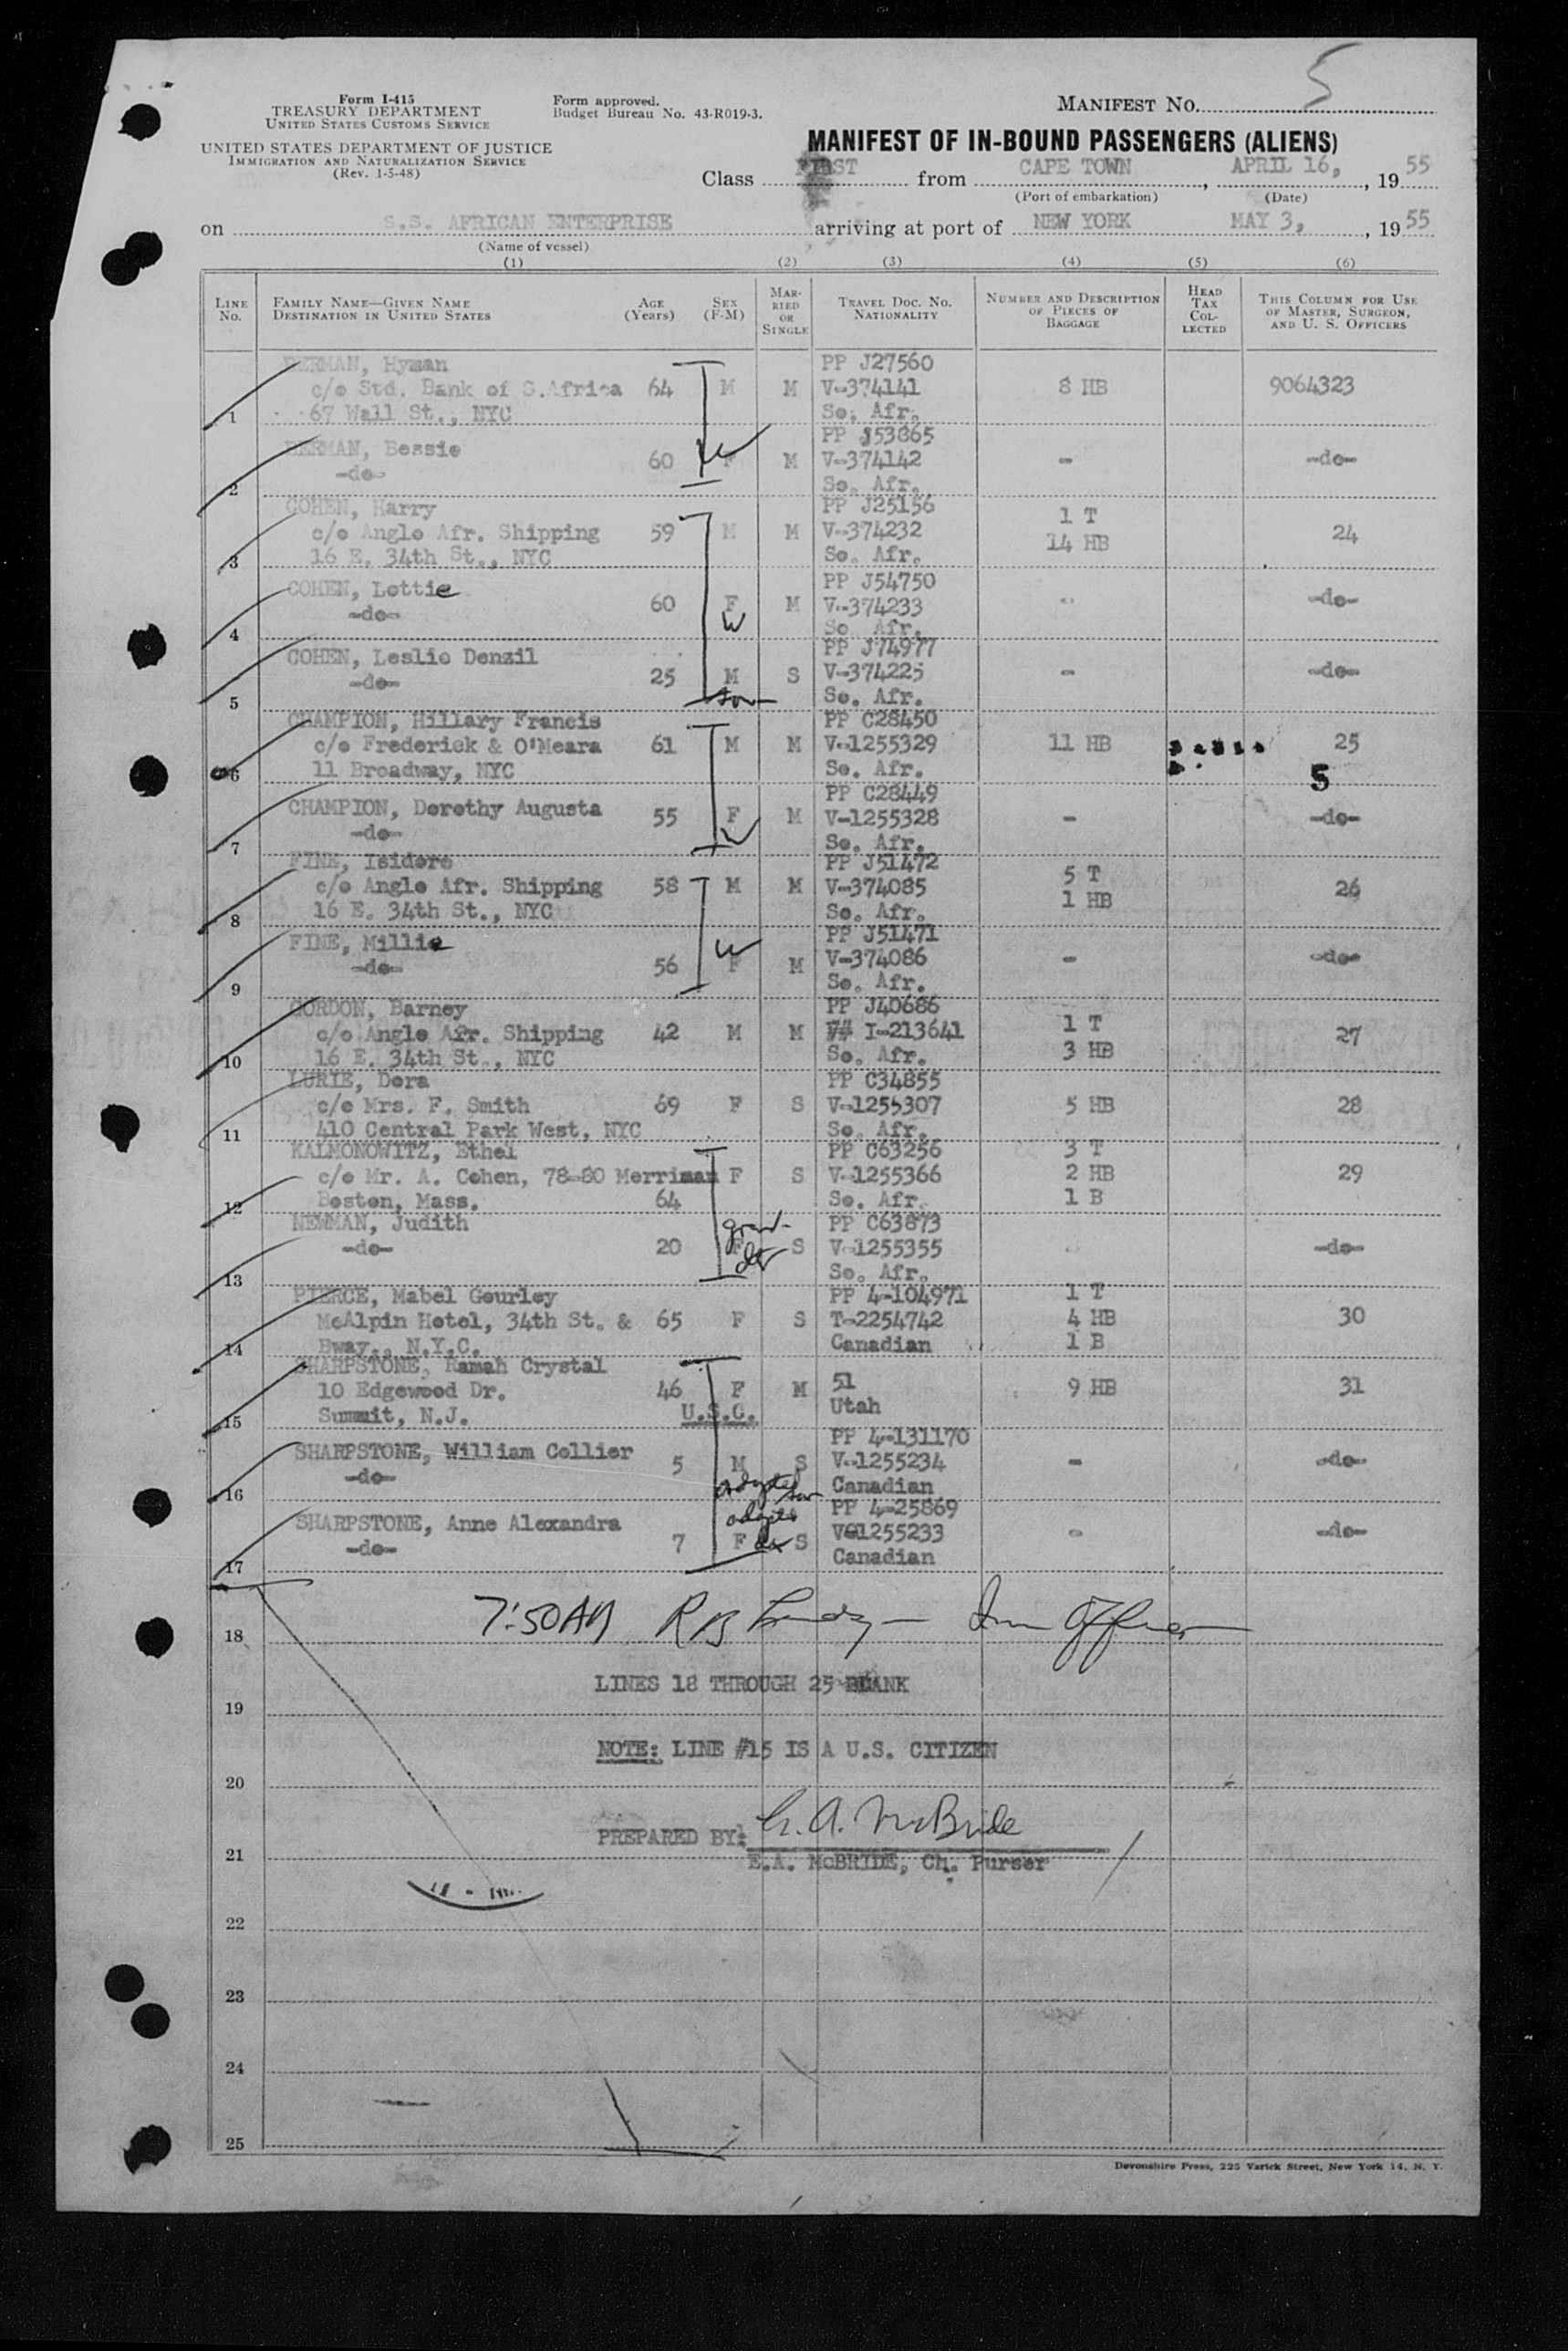 5
Form I-415
TREASURY DEPARTMENT
UNITED STATES CUSTOMS SERVICE
UNITED STATES DEPARTMENT OF JUSTICE
IMMIGRATION AND NATURALIZATION SERVICE
(Rev. 1-5-48)
Form approved.
Budget Bureau No. 43-R019-3.
MANIFEST NO.
MANIFEST OF IN-BOUND PASSENGERS (ALIENS)
Class FIRST from CAPE TOWN, APRIL 16, , 19 55
(Port of embarkation) (Date)
on S.S. AFRICAN ENTERPRISE arriving at port of NEW YORK MAY 3, , 19 55
(Name of vessel)
(1) (2) (3) (4) (5) (6)
LINE No. FAMILY NAME—GIVEN NAME DESTINATION IN UNITED STATES AGE (Years) SEX (F-M) MARRIED OR SINGLE TRAVEL DOC. NO. NATIONALITY NUMBER AND DESCRIPTION OF PIECES OF BAGGAGE HEAD TAX COLLECTED THIS COLUMN FOR USE OF MASTER, SURGEON, AND U. S. OFFICERS
BERMAN, Hyman PP J27560
c/o Std. Bank of S.Africa 64 M M V-374141 8 HB 9064323
1 67 Wall St., NYC So. Afr.
BERMAN, Bessie PP J53865
-do- 60 F W M V-374142 - -do-
2 So. Afr.
COHEN, Harry PP J25156 1 T
c/o Anglo Afr. Shipping 59 M M V-374232 14 HB 24
3 16 E. 34th St., NYC So. Afr.
COHEN, Lottie PP J54750
-do- 60 F W M V-374233 - -do-
4 So Afr.
COHEN, Leslie Denzil PP J74977
-do- 25 M S V-374225 - -do-
5 son So. Afr.
CHAMPION, Hillary Francis PP C28450
c/o Frederick & O'Meara 61 M M V-1255329 11 HB 25
6 11 Broadway, NYC So. Afr. 5
CHAMPION, Dorothy Augusta PP C28449
-do- 55 F W M V-1255328 - -do-
7 So. Afr.
FINE, Isidore PP J51472 5 T
c/o Anglo Afr. Shipping 58 M M V-374085 1 HB 26
8 16 E. 34th St., NYC So. Afr.
FINE, Millie PP J51471
-do- 56 W F M V-374086 - -do-
9 So. Afr.
GORDON, Barney PP J40686 1 T
c/o Anglo Afr. Shipping 42 M M I-213641 3 HB 27
10 16 E. 34th St., NYC So. Afr.
LURIE, Dora PP C34855
c/o Mrs. F. Smith 69 F S V-1255307 5 HB 28
11 410 Central Park West, NYC So. Afr.
KALMONOWITZ, Ethel PP C63256 3 T
c/o Mr. A. Cohen, 78-80 Merriman F S V-1255366 2 HB 29
12 Boston, Mass. 64 So. Afr. 1 B
NEWMAN, Judith PP C63873
-do- 20 F grand-dtr S V-1255355 - -do-
13 So. Afr.
PIERCE, Mabel Gourley PP 4-104971 1 T
McAlpin Hotel, 34th St. & 65 F S T-2254742 4 HB 30
14 Bway., N.Y.C. Canadian 1 B
SHARPSTONE, Ramah Crystal
10 Edgewood Dr. 46 F M 51 9 HB 31
15 Summit, N.J. U.S.C. Utah
SHARPSTONE, William Collier PP 4-131170
-do- 5 M S V-1255234 - -do-
16 adopted son Canadian
SHARPSTONE, Anne Alexandra adopted PP 4-25869
-do- 7 F S V01255233 - -do-
17 Canadian
18 7:50AM R B Imm Officer
LINES 18 THROUGH 25 BLANK
19
NOTE: LINE #15 IS A U.S. CITIZEN
20
PREPARED BY: E. A. McBride
21 E.A. McBRIDE, Ch. Purser
22
23
24
25
Devonshire Press, 225 Varick Street, New York 14, N. Y.